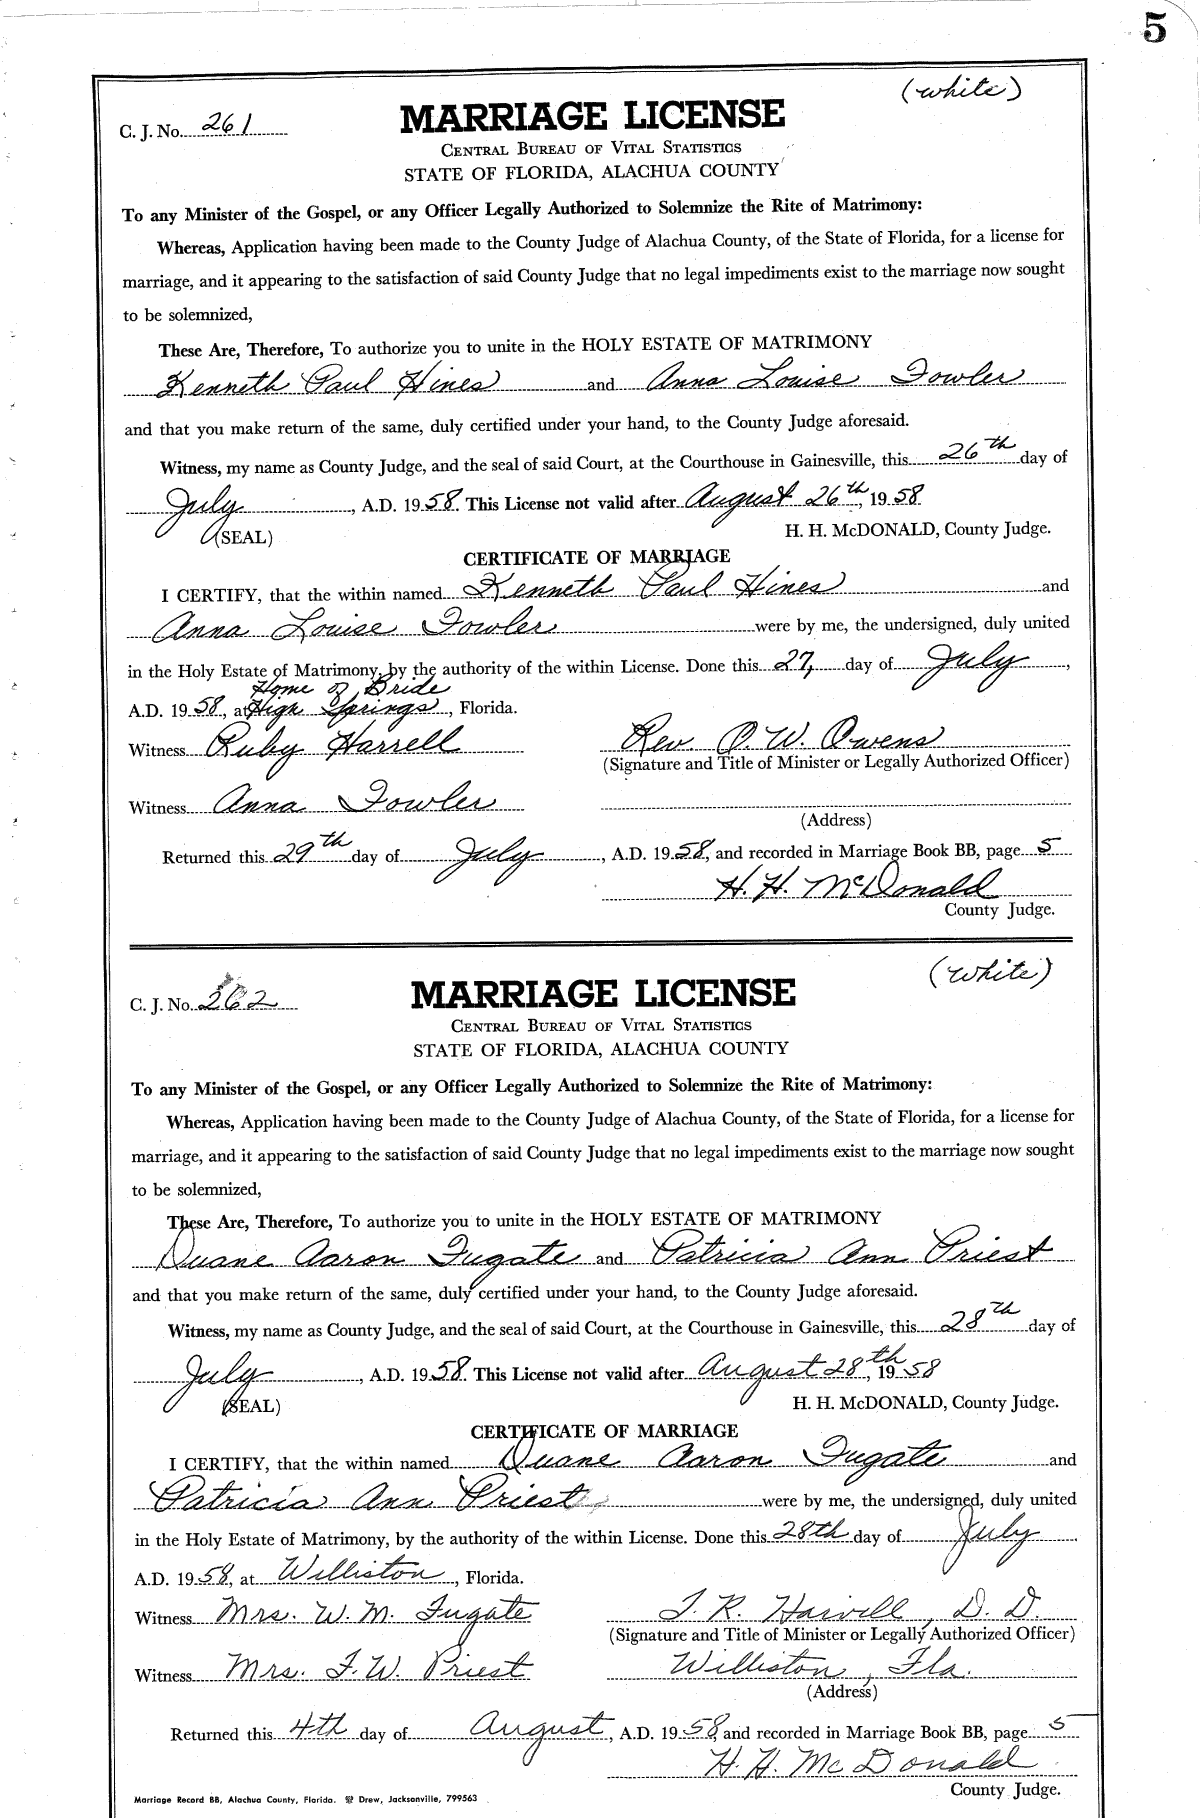 5
(white)
C. J. No. 261
MARRIAGE LICENSE
CENTRAL BUREAU OF VITAL STATISTICS
STATE OF FLORIDA, ALACHUA COUNTY
To any Minister of the Gospel, or any Officer Legally Authorized to Solemnize the Rite of Matrimony:
Whereas, Application having been made to the County Judge of Alachua County, of the State of Florida, for a license for
marriage, and it appearing to the satisfaction of said County Judge that no legal impediments exist to the marriage now sought
to be solemnized,
These Are, Therefore, To authorize you to unite in the HOLY ESTATE OF MATRIMONY
Kenneth Paul Hines and Anna Louise Fowler
and that you make return of the same, duly certified under your hand, to the County Judge aforesaid.
Witness, my name as County Judge, and the seal of said Court, at the Courthouse in Gainesville, this 26th day of
July, A.D. 1958. This License not valid after August 26th, 1958.
(SEAL) H. H. McDONALD, County Judge.
CERTIFICATE OF MARRIAGE
I CERTIFY, that the within named Kenneth Paul Hines and
Anna Louise Fowler were by me, the undersigned, duly united
in the Holy Estate of Matrimony, by the authority of the within License. Done this 27, day of July,
Home of Bride
A.D. 1958, at High Springs, Florida.
Witness Ruby Harrell Rev. O. W. Owens
(Signature and Title of Minister or Legally Authorized Officer)
Witness Anna Fowler
(Address)
Returned this 29th day of July, A.D. 1958, and recorded in Marriage Book BB, page 5
H. H. McDonald
County Judge.
(white)
C. J. No. 262
MARRIAGE LICENSE
CENTRAL BUREAU OF VITAL STATISTICS
STATE OF FLORIDA, ALACHUA COUNTY
To any Minister of the Gospel, or any Officer Legally Authorized to Solemnize the Rite of Matrimony:
Whereas, Application having been made to the County Judge of Alachua County, of the State of Florida, for a license for
marriage, and it appearing to the satisfaction of said County Judge that no legal impediments exist to the marriage now sought
to be solemnized,
These Are, Therefore, To authorize you to unite in the HOLY ESTATE OF MATRIMONY
Duane Aaron Fugate and Patricia Ann Priest
and that you make return of the same, duly certified under your hand, to the County Judge aforesaid.
Witness, my name as County Judge, and the seal of said Court, at the Courthouse in Gainesville, this 28th day of
July, A.D. 1958. This License not valid after August 28th, 1958
(SEAL) H. H. McDONALD, County Judge.
CERTIFICATE OF MARRIAGE
I CERTIFY, that the within named Duane Aaron Fugate and
Patricia Ann Priest were by me, the undersigned, duly united
in the Holy Estate of Matrimony, by the authority of the within License. Done this 28th day of July
A.D. 1958, at Williston, Florida.
Witness Mrs. W. M. Fugate J. R. Harvell, D. D.
(Signature and Title of Minister or Legally Authorized Officer)
Witness Mrs. F. W. Priest Williston, Fla.
(Address)
Returned this 4th day of August, A.D. 1958, and recorded in Marriage Book BB, page 5
H. H. McDonald
County Judge.
Marriage Record BB, Alachua County, Florida. Drew, Jacksonville, 799563